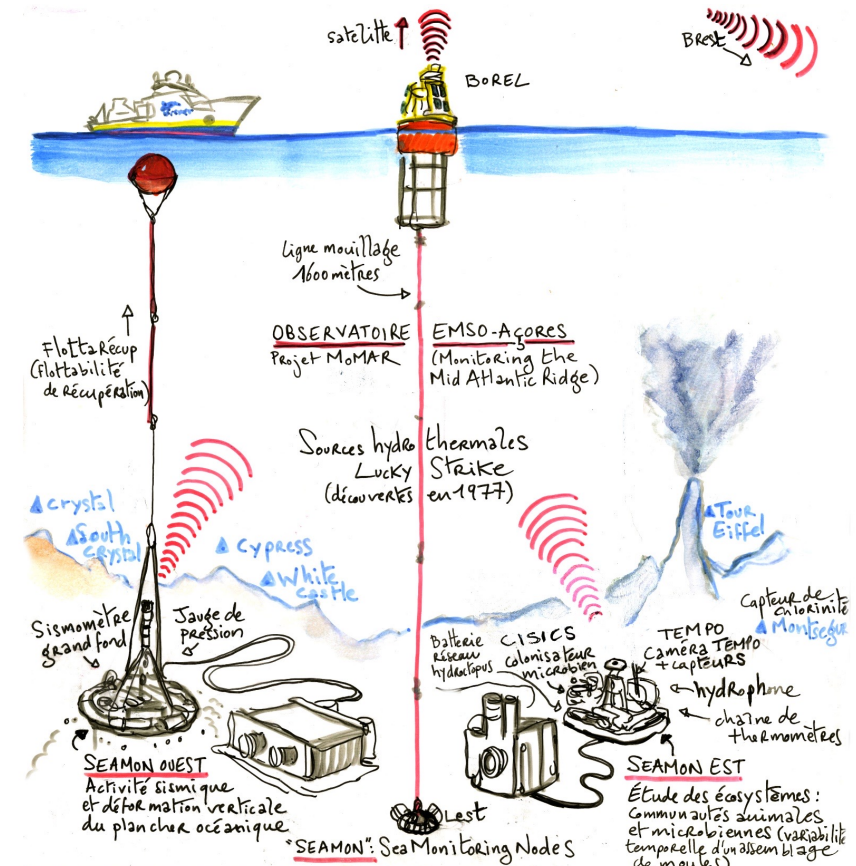 satelitte
BOREL
Brest
Ligne mouillage
1600 mètres
OBSERVATOIRE EMSO-AÇORES
Projet MoMAR (Monitoring the
Mid Atlantic Ridge)
FlottaRécup
(flottabilité
de récupération)
Sources hydrothermales
Lucky Strike
(découvertes en 1977)
Crystal
South
Crystal
Cypress
White
Castle
Tour
Eiffel
Capteur de
chlorinité
Montsegur
Sismomètre
grand fond
Jauge de
pression
Batterie
réseau
hydroctopus
CISICS
colonisateur
microbien
TEMPO
Caméra TEMPO
+ capteurs
hydrophone
chaîne de
thermomètres
SEAMON OUEST
Activité sismique
et déformation verticale
du plancher océanique
Lest
"SEAMON": Sea Monitoring Nodes
SEAMON EST
Étude des écosystèmes :
Communautés animales
et microbiennes (variabilité
temporelle d'un assemblage
de moules)